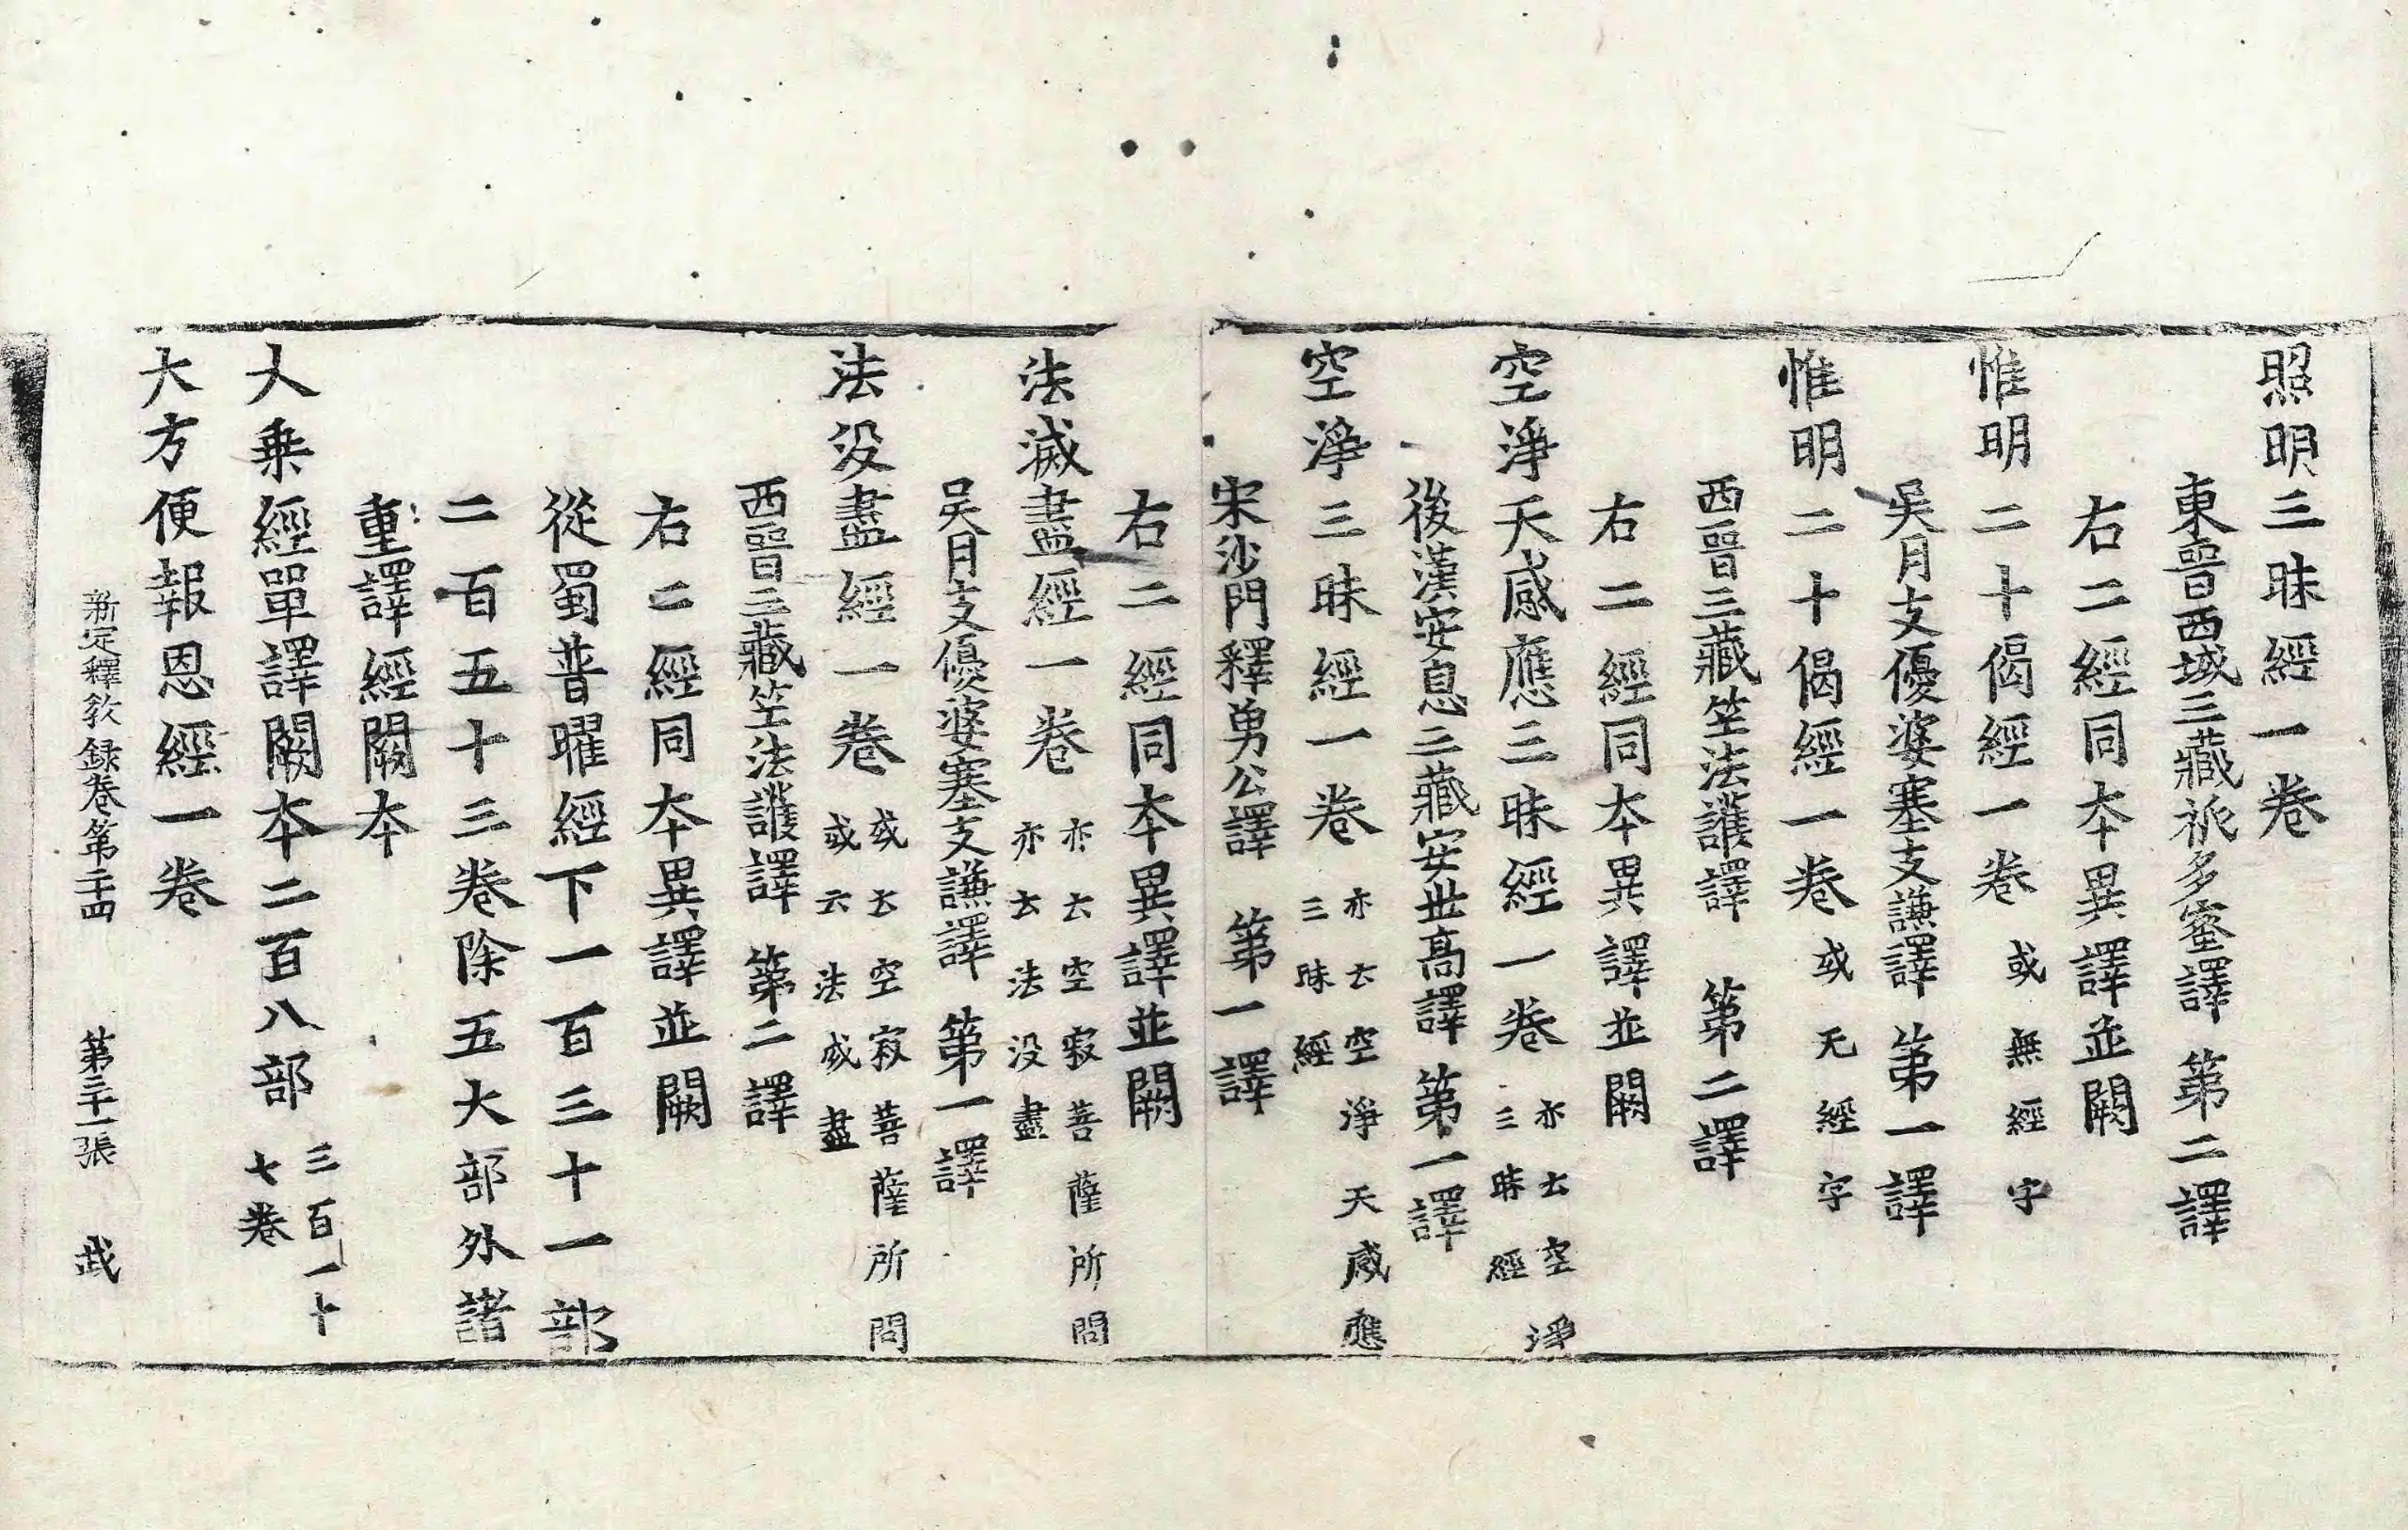 照明三昧經一卷
東晉西域三藏祇多蜜譯 第二譯
右二經同本異譯並闕
惟明二十偈經一卷 或無經字
吳月支優婆塞支謙譯 第一譯
惟明二十偈經一卷 或无經字
西晉三藏竺法護譯 第二譯
右二經同本異譯並闕
空淨天感應三昧經一卷 亦云空淨三昧經
後漢安息三藏安世高譯 第一譯
空淨三昧經一卷 亦云空淨天感應三昧經
宋沙門釋勇公譯 第一譯
右二經同本異譯並闕
法滅盡經一卷 亦云空寂菩薩所問亦云法没盡
吳月支優婆塞支謙譯 第一譯
法没盡經一卷 或云空寂菩薩所問或云法或盡
西晉三藏竺法護譯 第二譯
右二經同本異譯並闕
從蜀普曜經下一百三十一部
二百五十三卷除五大部外諸
重譯經闕本
大乘經單譯闕本二百八部 三百一十七卷
大方便報恩經一卷
新定釋教録卷第二十四 第三十一張 武